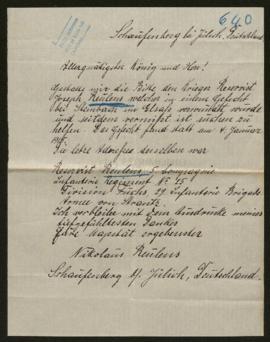 640
Schaufenberg bei Jülich, Deutschland
Allergnädigster König und Herr!
Gestatte mir die Bitte den Krieger Reservist
Joseph Reulens welcher in einem Gefecht
bei Steinbach im Elsass verwundet wurde
und seitdem vermisst ist suchen zu
helfen. Das Gefecht fand statt am 4. Januar
1915.
Die letzte Adresse desselben war
Reservist Reulens 5. Compagnie
Infanterie Regiment No
Division Fuchs 29 Infanterie Brigade
Armee von
Ich verbleibe mit dem Ausdrucke meines
tiefgefühltesten Dankes
Majestät ergebenster
Nikolaus Reulens
Schaufenberg b/ Jülich, Deutschland.